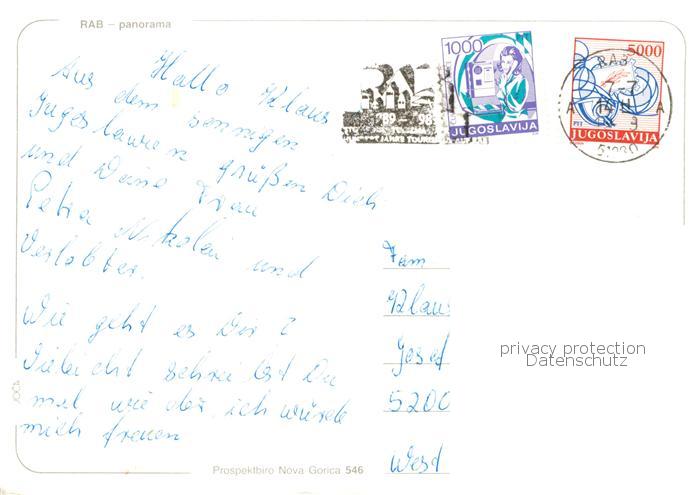 RAB – panorama
Hallo Klaus
Aus dem sonnigen
Jugoslawien grüßen Dich
und Deine Frau
Petra Nikolai und
Verlobter.
Wie geht es Dir?
Vieleicht schreibst Du
mal wieder, ich würde
mich freuen
1000
JUGOSLAVIJA
5000
PTT
JUGOSLAVIJA
RAB
A A
51280
'89
Fam
Klaus
Josef
5200
West
privacy protection
Datenschutz
Prospektbiro Nova Gorica 546